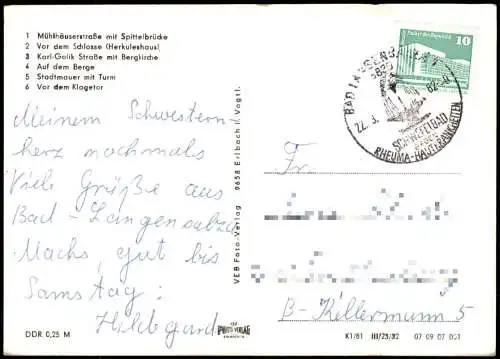 1 Mühlhäuserstraße mit Spittelbrücke
2 Vor dem Schlosse (Herkuleshaus)
3 Karl-Golik Straße mit Bergkirche
4 Auf dem Berge
5 Stadtmauer mit Turm
6 Vor dem Klagetor
Meinem Schwestern
herz nochmals
Viele Grüße aus
Bad-Langensalza
Machs gut bis
Samstag:
Hildegard
DDR 0,25 M
VEB Foto-Verlag 9658 Erlbach i. Vogtl.
10
BAD LANGENSALZA 1
5820
22. 3. 82
SCHWEFELBAD
GEGEN
RHEUMA-HAUTKRANKHEITEN
Fr.
B-Kellermann 5
K1/81 III/23/32 07 09 07 001